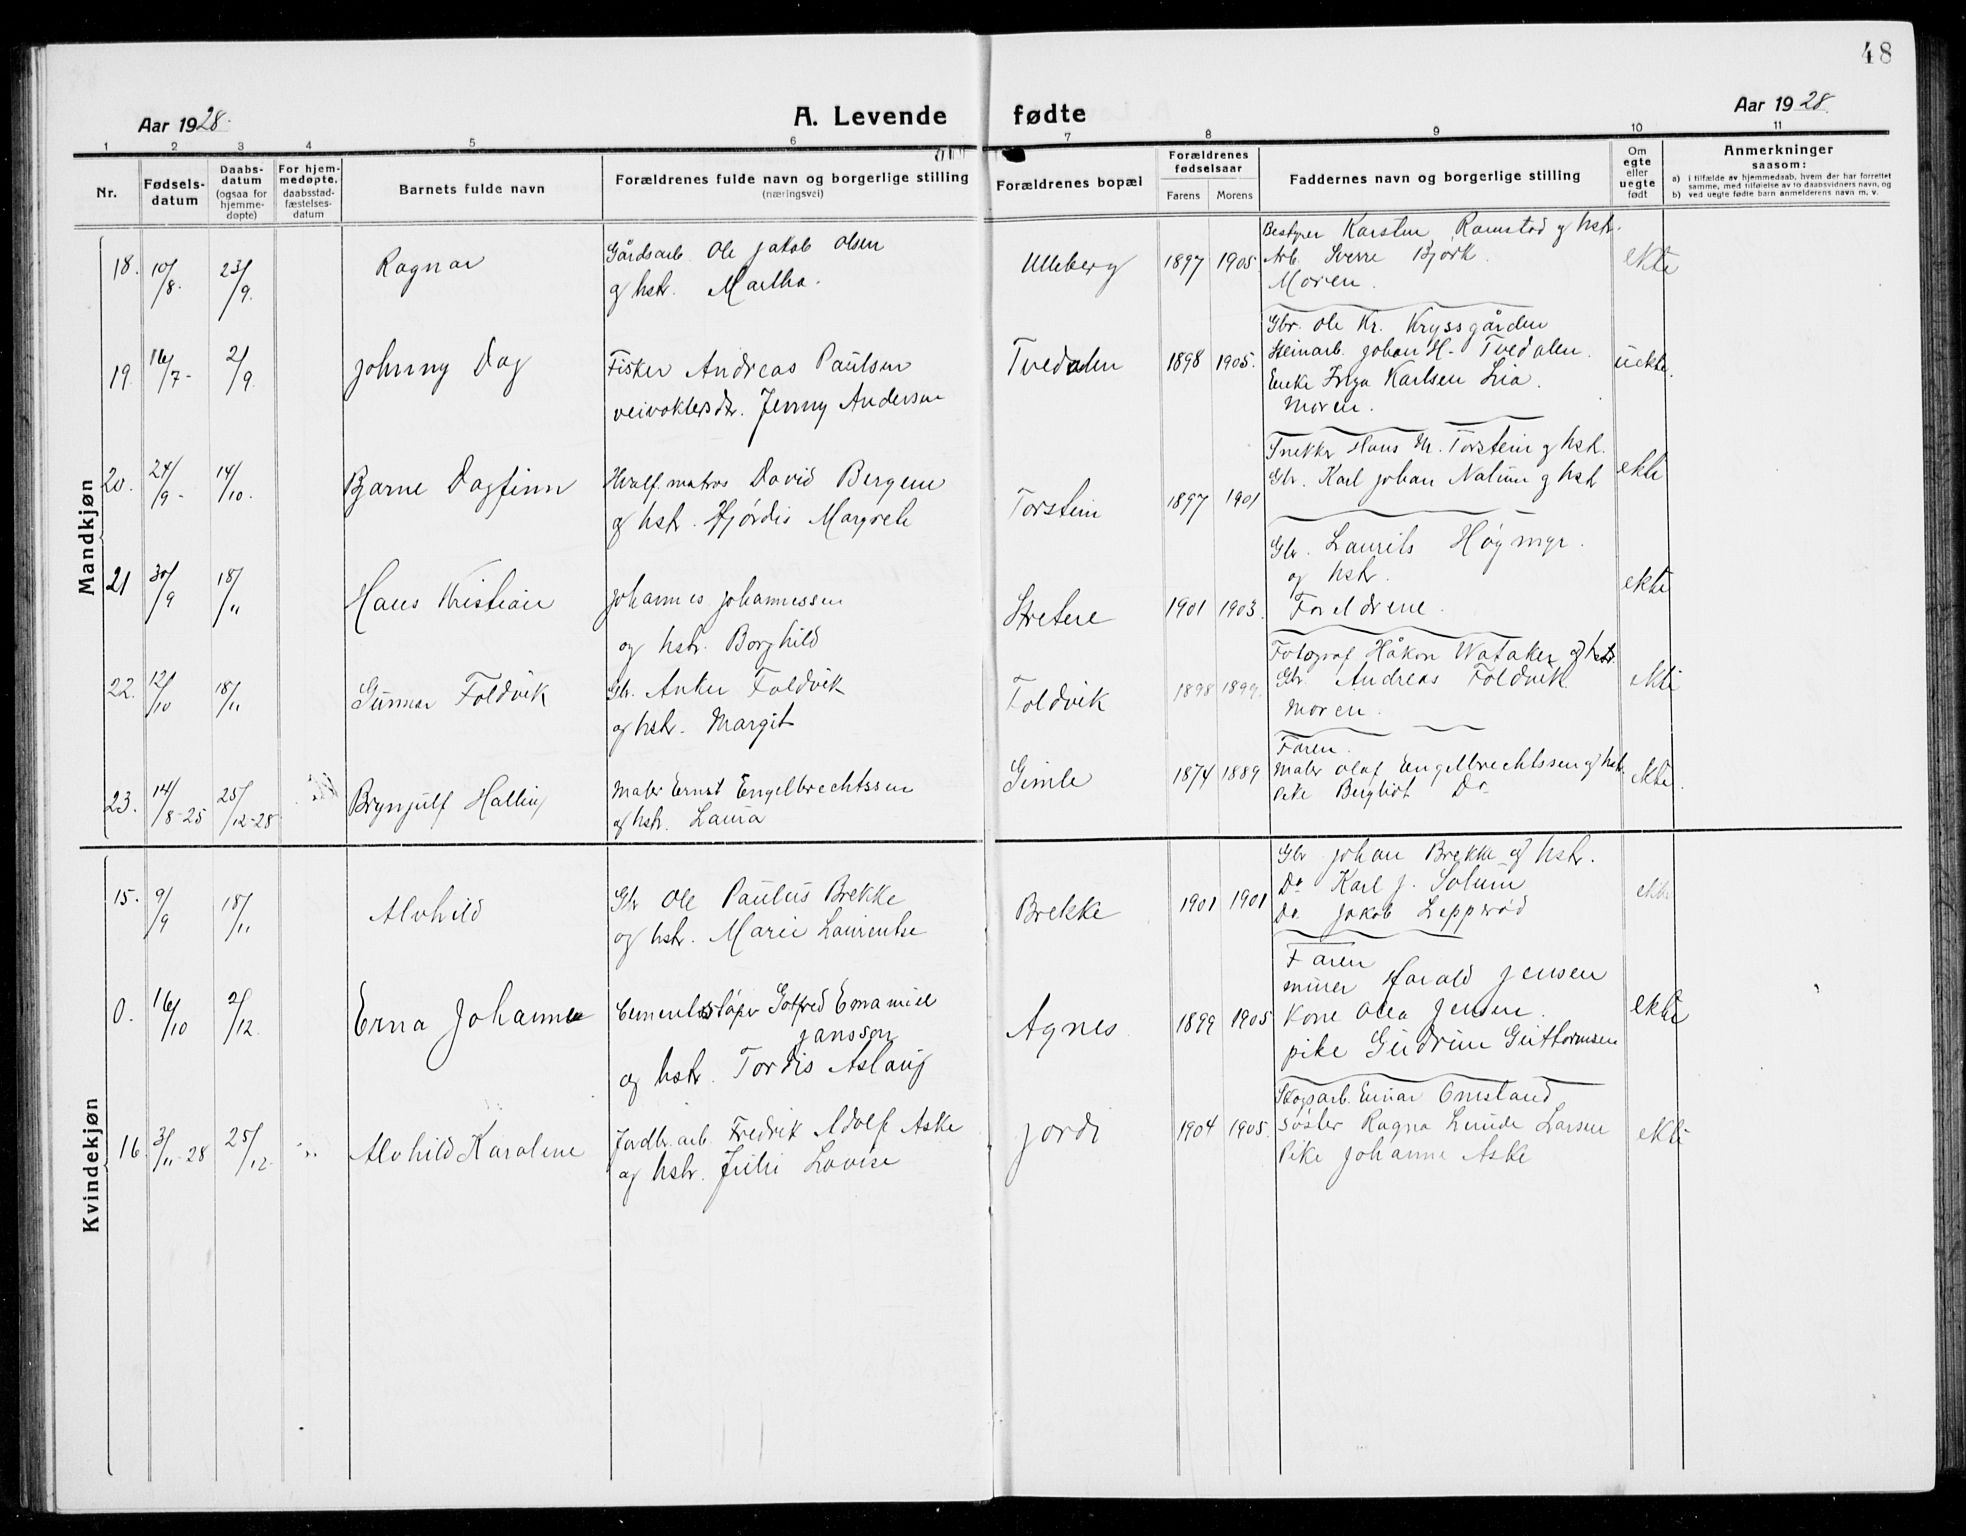 48
Aar 1928.
A. Levende fødte
Aar 1928.
1 2 3 4 5 6 7 8 9 10 11
Nr.
Fødsels-datum
Daabs-datum (ogsaa for hjemme-døpte)
For hjem-medøpte. daabsstad-fæstelses-datum
Barnets fulde navn
Forældrenes fulde navn og borgerlige stilling
(næringsvei)
Forældrenes bopæl
Forældrenes fødselsaar
Farens Morens
Faddernes navn og borgerlige stilling
Om egte eller uegte født
Anmerkninger
saasom:
a) i tilfælde av hjemmedaab, hvem der har forrettet samme, med tilføielse av to daabsvidners navn, og
b) ved uegte fødte barn anmelderens navn m. v.
Mandkjøn
18. 10/8. 23/9. Ragnar
Gårdsarb. Ole Jakob Olsen
og hstr. Martha.
Ulleberg 1897 1905.
Bestyrer Karsten Ramstad og hstr.
Arb. Sverre Bjørk.
Moren.
ekte
19. 16/7- 2/9. Johnny Dag
Fisker Andreas Paulsen
veivokters dtr. Jenny Andersen
Tvedalen 1898 1905.
Gbr. Ole Kr. Kryssgården
Steinarb. Johan H. Tvedalen.
Enke Inga Karlsen Lia.
Moren.
uekte.
20. 24/9- 14/10. Bjarne Dagfinn
Hvalf.matros David Bergene
og hstr. Hjørdis Margrete
Torstein 1897 1901
Snekker Hans M. Torstein og hstr.
Gbr. Karl Johan Nalum og hstr
ekte
21 30/9 18/11 Hans Kristian
Johannes Johannessen
og hstr. Borghild
Stretere 1901 1903.
Gbr. Laurits Høgmyr.
og hstr.
Foreldrene.
ekte
22. 12/10 18/11 Gunnar Foldvik
Gbr. Anker Foldvik
og hstr. Margit
Foldvik 1898 1899.
Fotograf Håkon Wataker og hstr.
Gbr. Andreas Foldvik
Moren.
ekte
23. 14/8-25 25/12-28 Brynjulf
Maler Ernst Engelbrechtssen
og hstr. Laura
Gimle 1874 1889
Faren.
Maler Olaf Engelbrechtssen og hstr.
Pike Bergliot Do
ekte.
Kvindekjøn
15. 9/9 18/11 Alvhild
Gbr Ole Paulus Brekke
og hstr. Marie Laurentse
Brekke 1901 1901
Gbr Johan Brekke og hstr.
Do Karl J. Solum
Do. Jakob Lepperød
ekte
0. 16/10 2/12. Erna Johanne
Cementstøper Gotfred Emanuel
Jansson
og hstr. Tordis Aslaug
Agnes 1899 1905
Faren
murer Harald Jensen
Kone Olea Jensen.
pike Gudrun Guttormsen
ekte
16. 3/11-28 25/12. Alvhild Karoline
Jordbr.arb. Fredrik Adolf Aske
og hstr. Julie Lovise
Jordi 1904 1905.
Skogsarb. Einar Omstand
Søster Ragna Lunde Larsen
Pike Johanne Aske
ekte